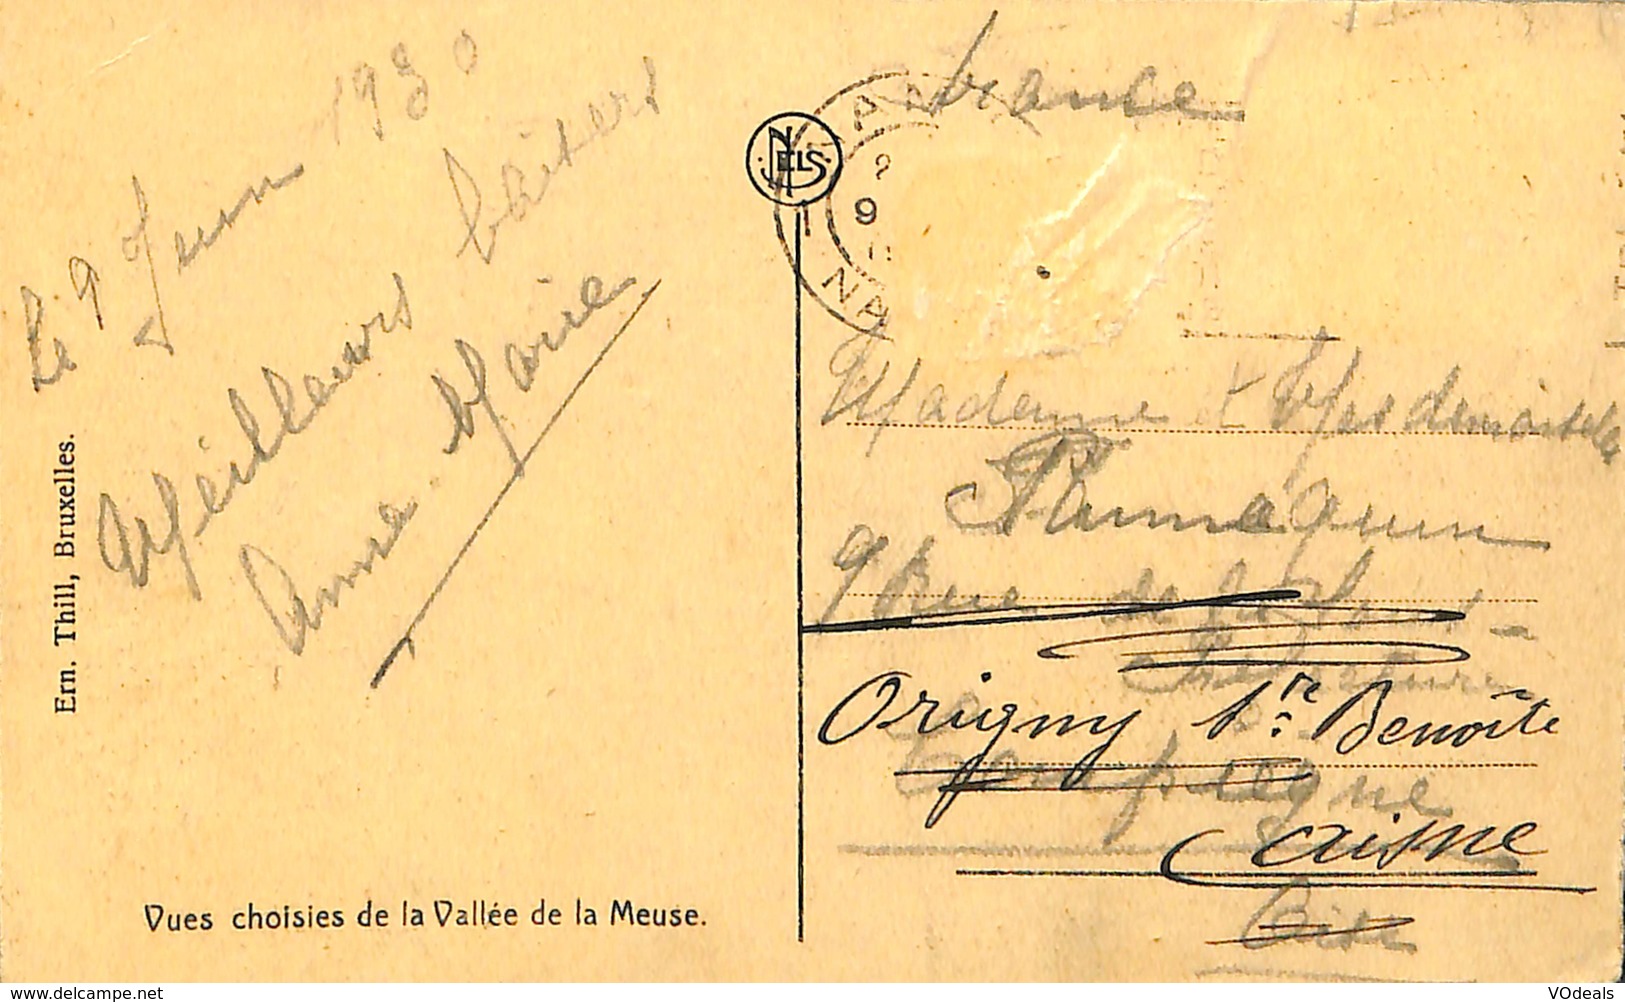 Le 9 Juin 1930
Meilleurs baisers
Anne-Marie
Ern. Thill, Bruxelles.
Vues choisies de la Vallée de la Meuse.
NELS
NA
9
France
Madame & Mesdemoiselles
9 Rue de la
Origny Ste Benoîte
Compiègne
Aisne
Oise
www.delcampe.net
VOdeals